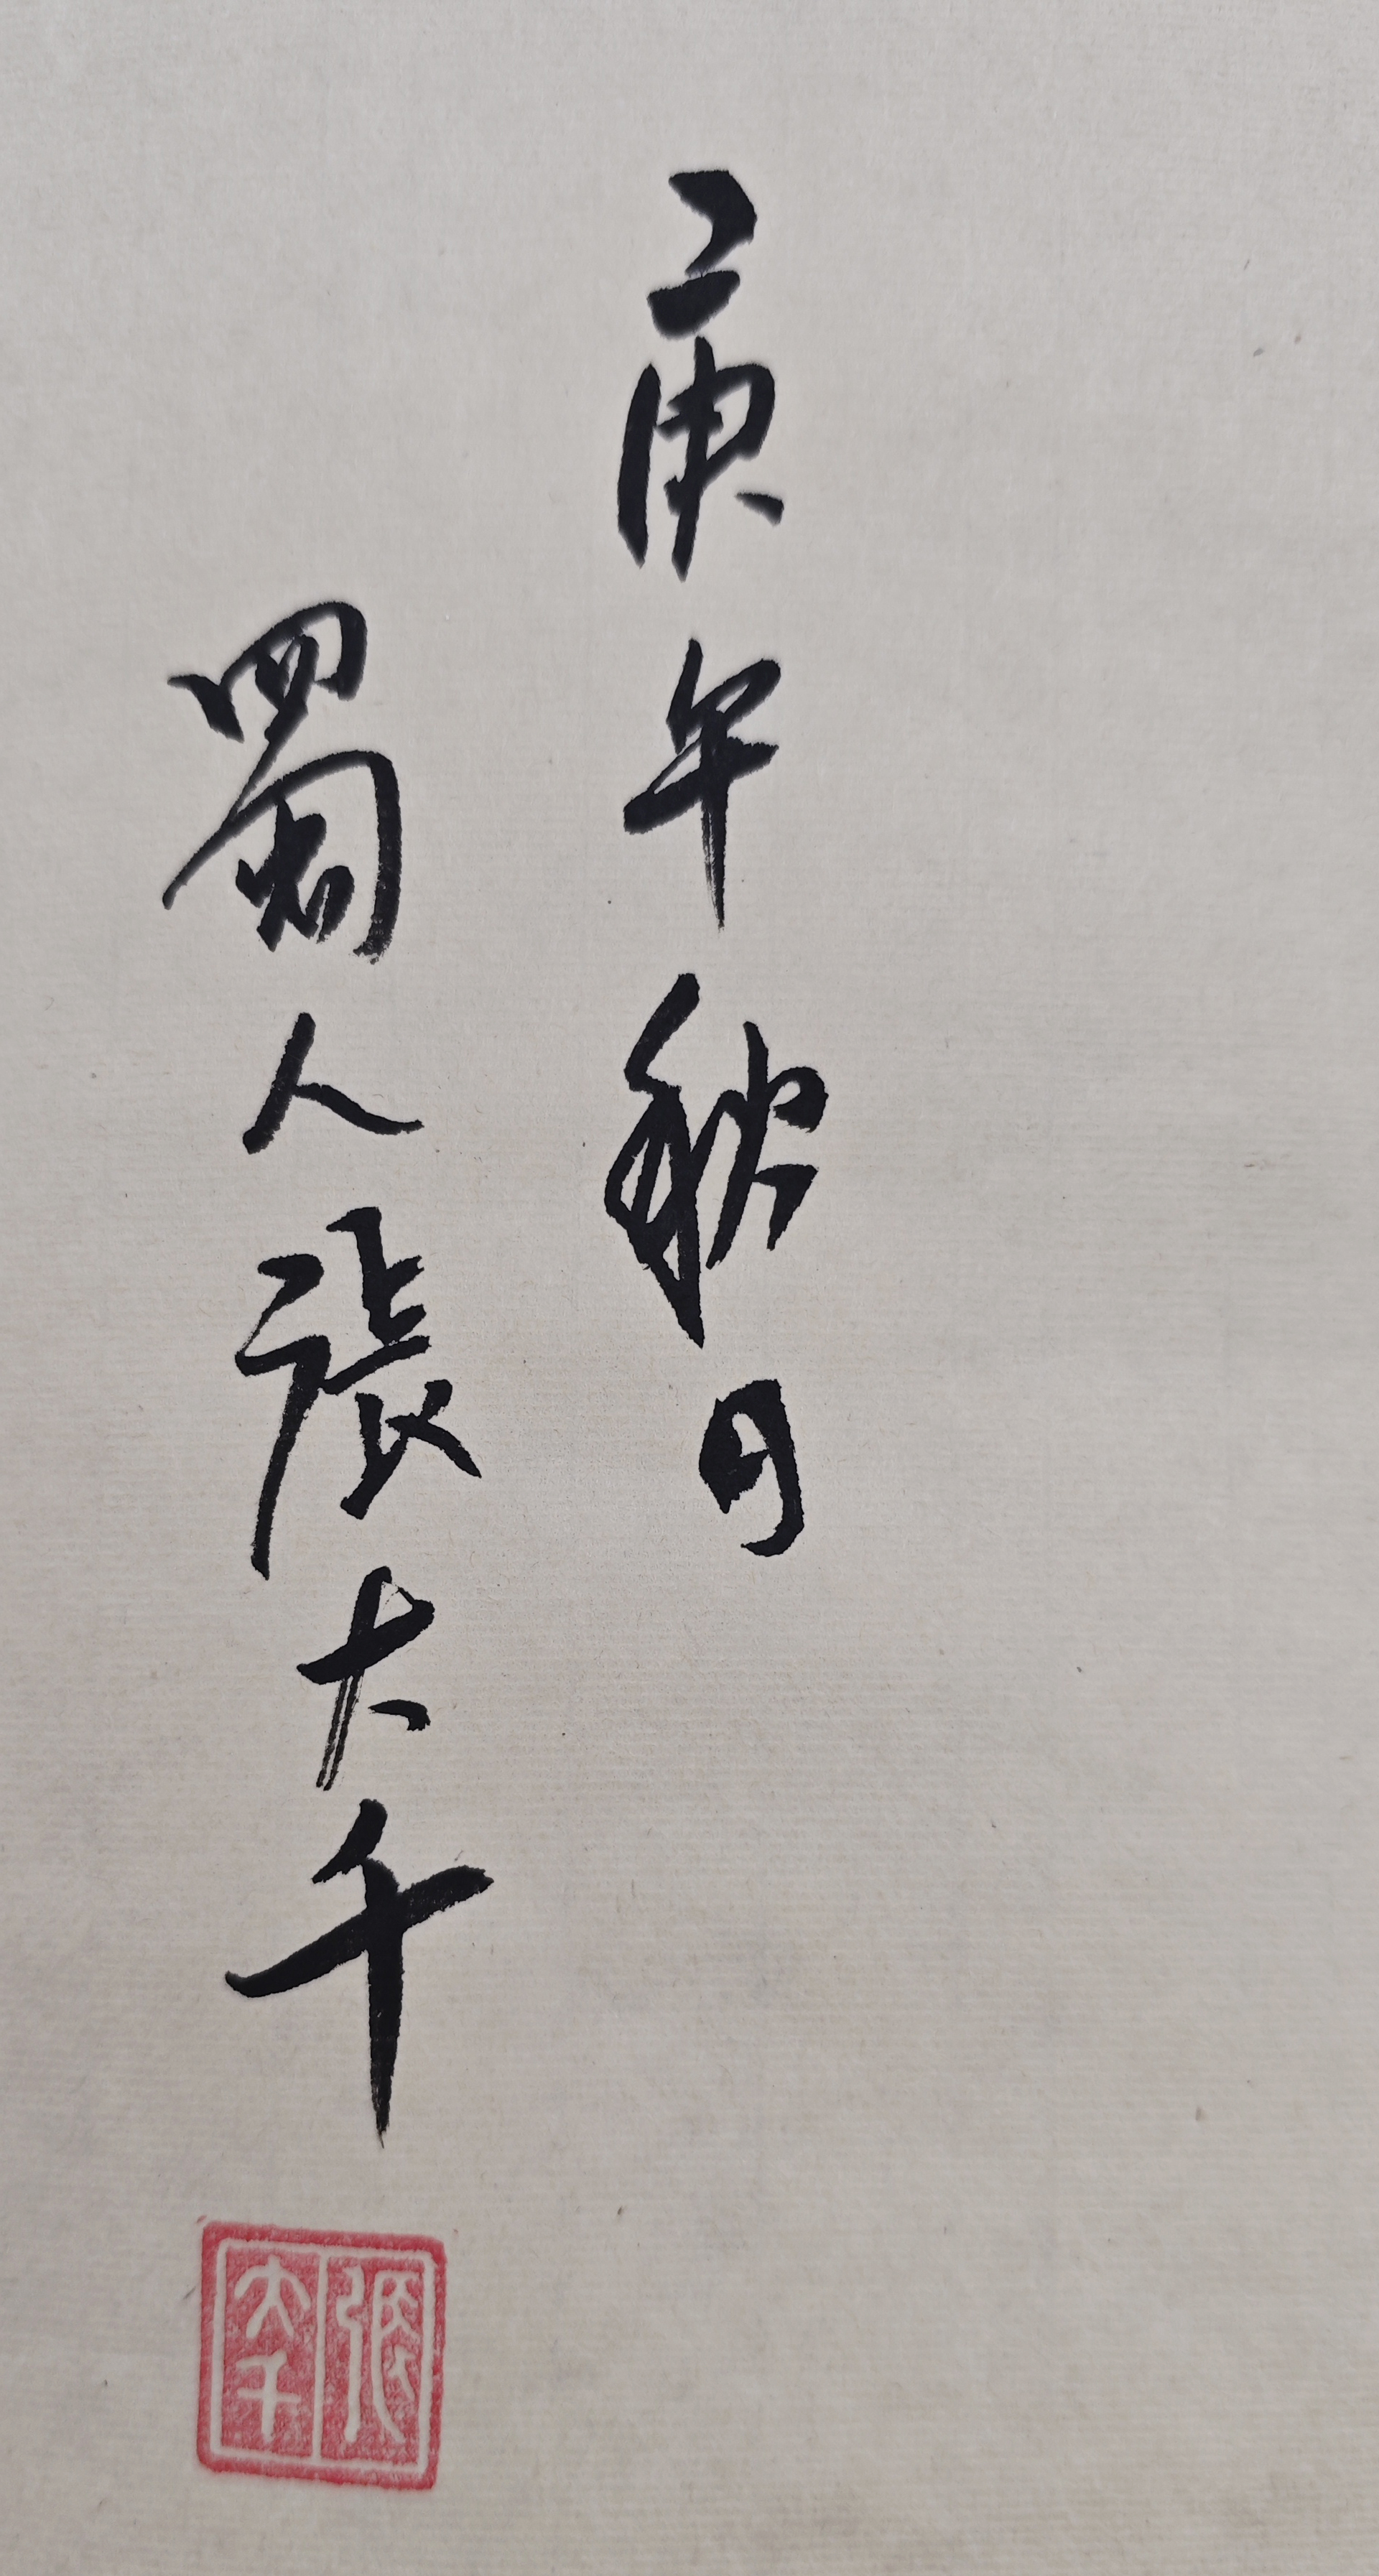 庚午秋月
蜀人張大千
張大千